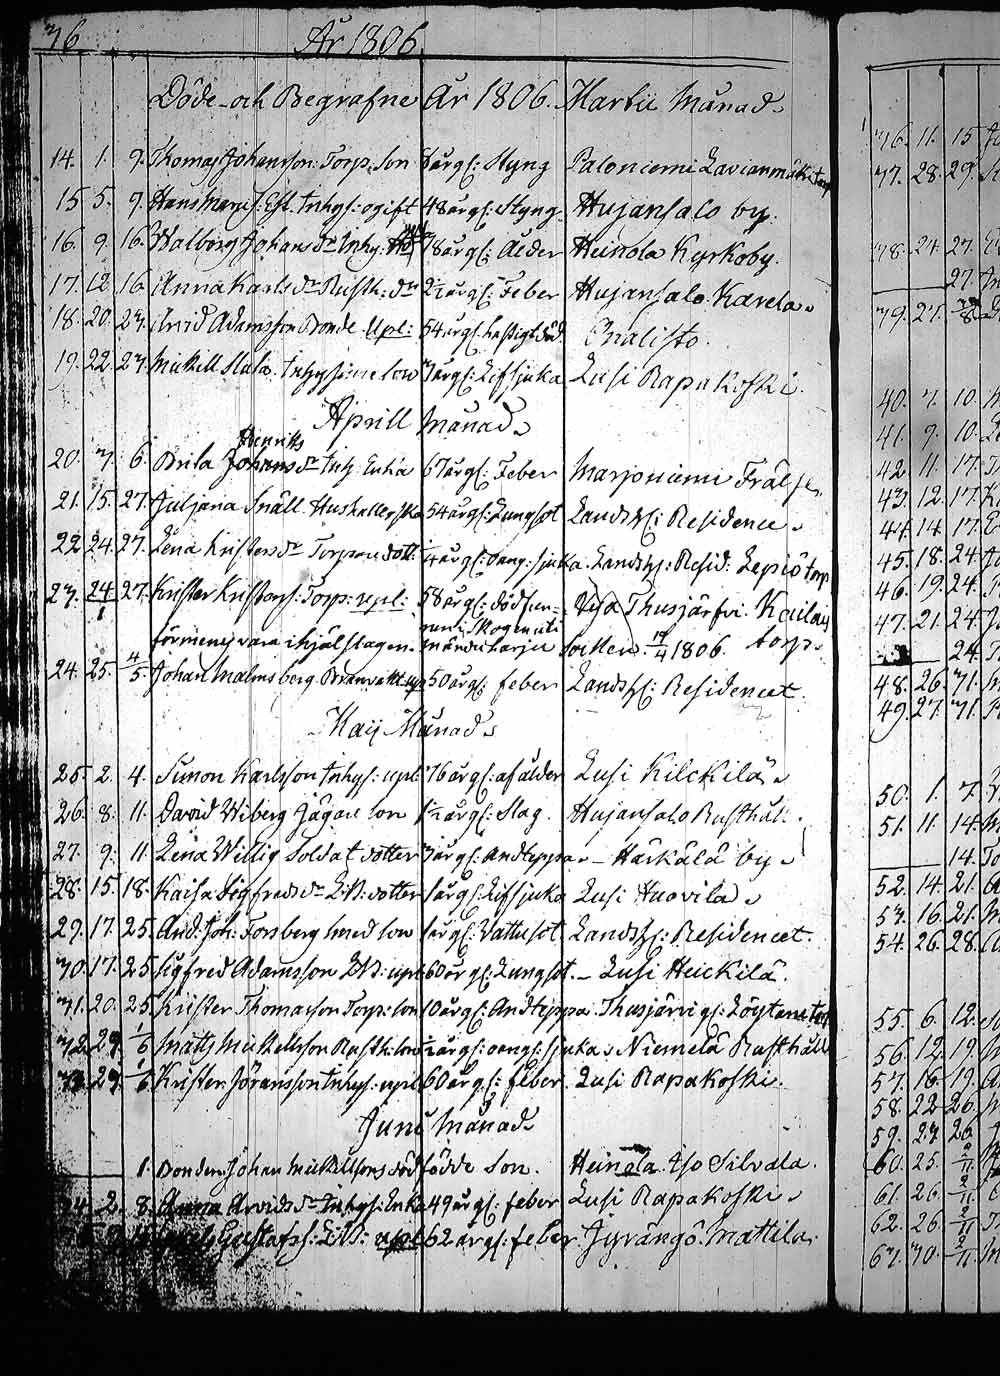 36 År 1806.
Döde och Begrafne År 1806. Martii Månad.
14. 1. 9. Thomas Johansson Torp. Son 8 år gl: Styng Paloniemi Lavianmäki torp
15 5. 9. Hans 48 år gl: Styng Hujansalo by.
16. 9. 16. Walborg Johans dr Inhy: 78 år gl: Ålder Heinola Kyrkoby.
17. 12. 16. Anna Karls dr Rusth: dr 2½ år gl: Feber Hujansalo Karela.
18. 20. 23. Arvid Adamsson Bonde upl: 54 år gl. hastigt död. Onalisto.
19. 22. 23. Mickell inhyses son 3 år gl: Lifsjuka Lusi Rapakoski.
Aprill Månad.
Henriks
20. 3. 6. Brita Johans dr Inh: Enka 67 år gl: Feber Marjoniemi Frälse.
21. 15. 27. Juljana Snäll Hushållerska 54 år gl: Lungsot Landsh: Residence.
22 24. 27. Lena Kristers dr Torpare dott: ¼ år gl: oang: sjuka. Landsh: Resid: Lepiö torp
23. 24/1 27. Krister Kristers: Torp: upl: 58 år gl: död fun= Thusjärfvi Kailais
förmenes vara ihjälslagen. nen i Skogen uti Harju Socken. 19/4 1806. torp.
24. 25. 4/5. Johan Malmsberg Brännvakt upl 50 år gl: feber Landsh: Residencet.
Maij Månad.
25. 2. 4. Simon Karlsson Inhys: upl: 76 år gl: af ålder Lusi Kilckilä.
26. 8. 11. David Wiberg Jägare son 1½ år gl: Slag. Hujansalo Rusthåll.
27. 9. 11. Lena Willig Soldat dotter 3 år gl: Andteppa. Härkälä by.
28. 15. 18. Kaisa Sigfreds dr L:B: dotter 1 år gl: Lifsjuka Lusi Huovila.
29. 17. 25. And: Joh: Forsberg smed son 1 år gl: Vattusot. Landsh: Residencet.
30. 17. 25. Sigfred Adamsson L:B: upl 60 år gl: Lungsot. Lusi Heickilä.
31. 20. 25. Krister Thomasson Torp: son 10 år gl: Andteppa Thusjärvi gl: Löytane torp
32. 29. 1/6 Matts Mickellsson Rusth: son ½ år gl: oang: sjuka. Niemelä Rusthåll
33. 29. 1/6 Krister Jöransson Inhys: upl 60 år gl: feber. Lusi Rapakoski.
Junii Månad.
1. Bonden Johan Mickellsons dödfödde Son. Heinola Iso Silvala.
34. 2. 8. Anna Arvids dr Inhys: Enka 49 år gl: feber Lusi Rapakoski.
Gustafs: L:B: upl 62 år gl: feber. Jyrängö Mattila.
36. 11. 15
37. 28. 29.
38. 24. 27.
27.
39. 27.
40. 7. 10.
41. 9. 10.
42. 11. 17.
43. 12. 17.
44. 14. 17.
45. 18. 24.
46. 19. 24.
47. 21. 24.
24.
48. 26. 31.
49. 27. 31.
50. 1. 7.
51. 11. 14.
14.
52. 14. 21.
53. 16. 21.
54. 26. 28.
55. 6. 12.
56. 12. 19.
57. 16. 19.
58. 22 26.
59. 23 26
60. 25. 2/11
61. 26. 2/11
62. 26. 2/11
63. 30. 2/11